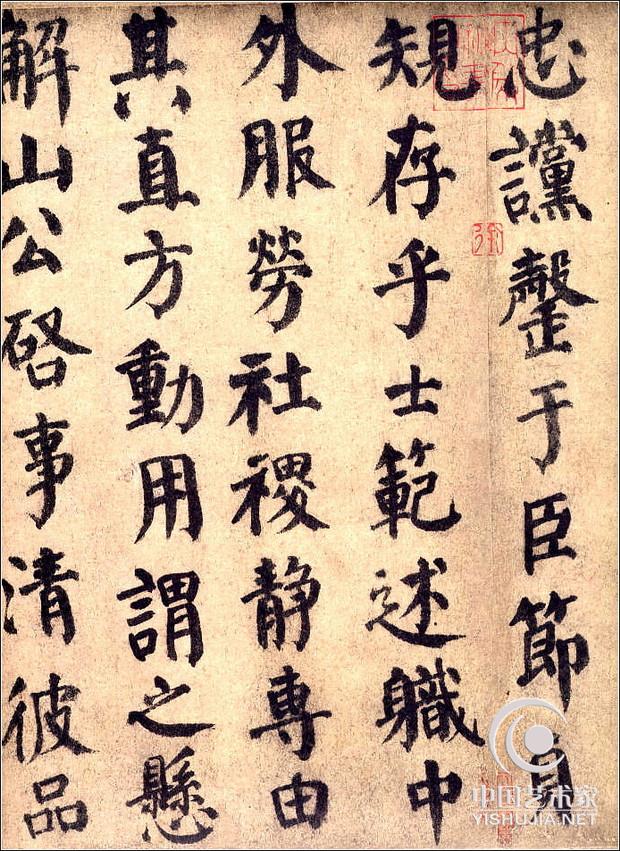 忠讜罄于臣節貞
規存乎士範述軄中
外服勞社稷静專由
其直方動用謂之懸
解山公啓事清彼品
中国艺术家
YISHUJIA.NET